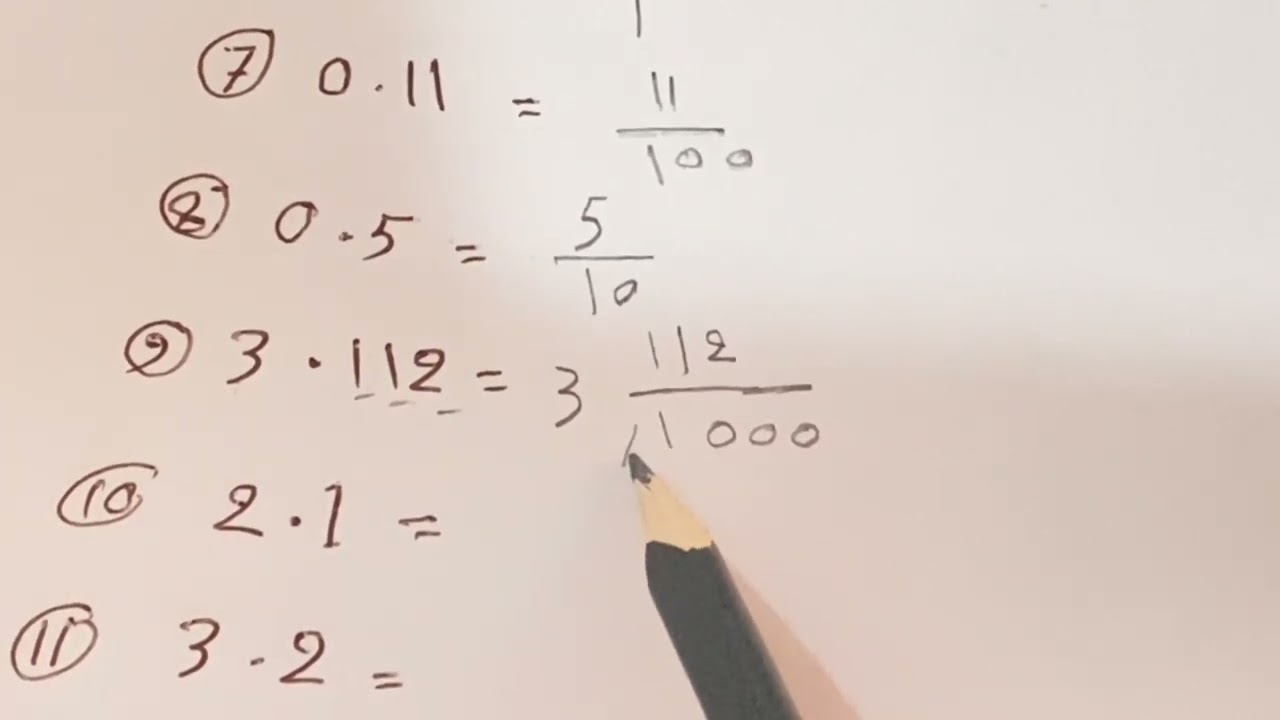 ⑦ 0.11 = 11/100
⑧ 0.5 = 5/10
⑨ 3.112 = 3 112/1000
⑩ 2.1 =
⑪ 3.2 =